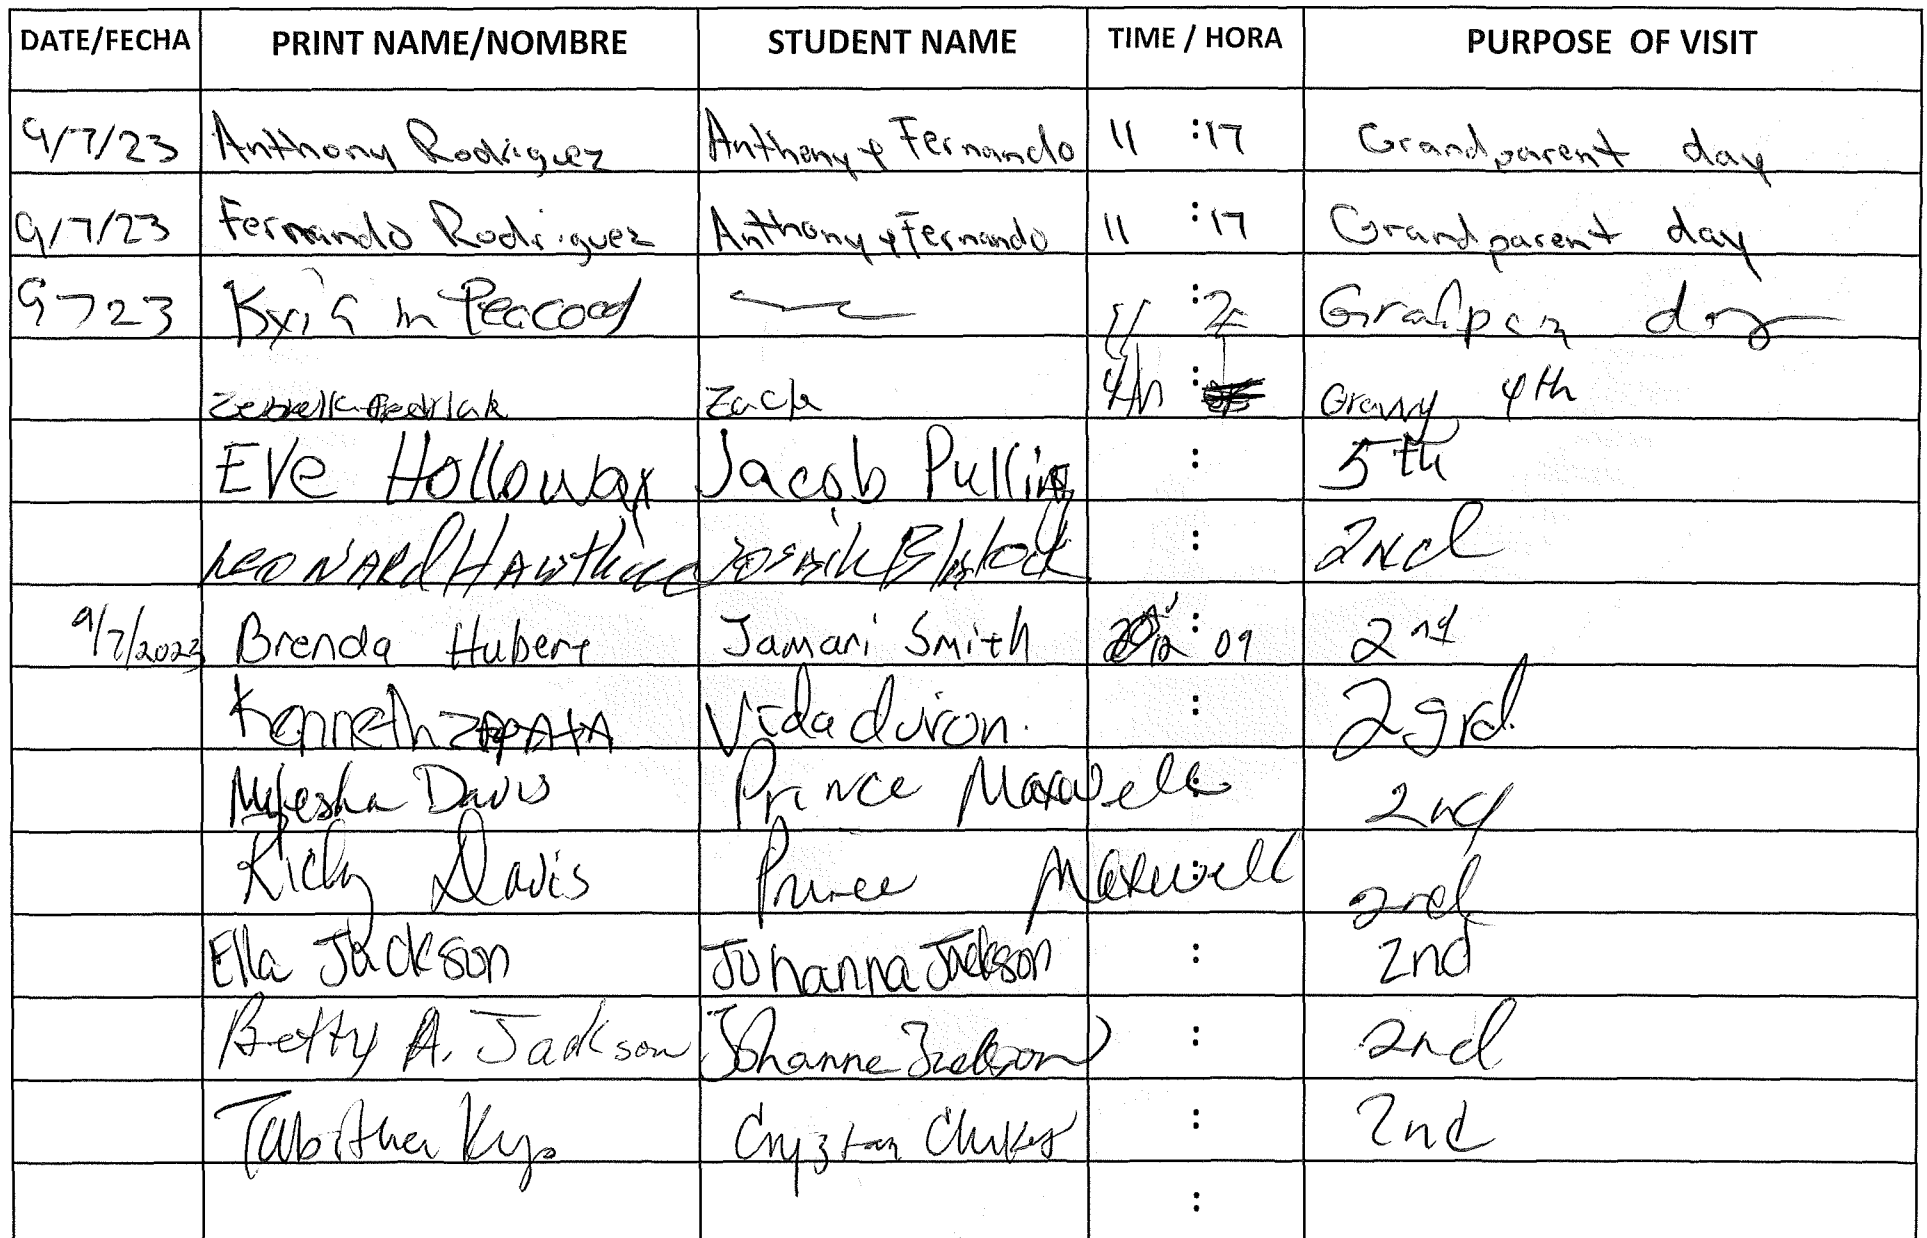 DATE/FECHA PRINT NAME/NOMBRE STUDENT NAME TIME / HORA PURPOSE OF VISIT
9/7/23 Anthony Rodriguez Anthony & Fernando 11 :17 Grandparent day
9/7/23 Fernando Rodriguez Anthony & Fernando 11 :17 Grandparent day
9723 in 11 :
Zach 4th : 4th
Eve Holloway Jacob Pullins : 5th
LEONARD : 2nd
9/7/2023 Brenda Hubert Jamari Smith 12 : 09 2nd
Kenneth ZAPATA Vida duron. :
Davis Prince Maxwell : 2nd
Ricky Davis Prince Maxwell : 2nd
Ella Jackson Johanna Jackson : 2nd
Betty A. Jackson Johanna Jackson : 2nd
Tabitha : 2nd
: